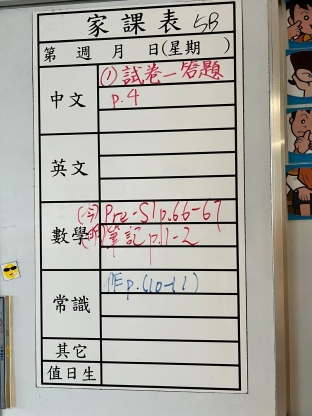 家課表 5B
第 週 月 日(星期 )
中文
(1)試卷一答題
p.4
英文
數學
(今)Pre-S1 p.66-67
筆記 p.1-2
常識
作 p.(10-11)
其它
值日生